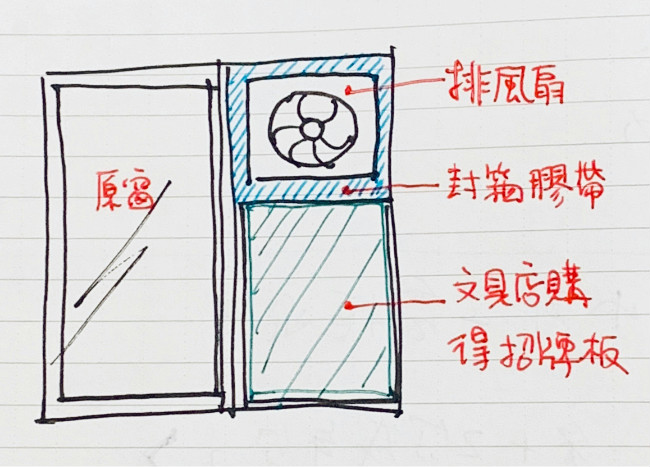 排風扇
原窗
封箱膠帶
文具店購
得招牌板